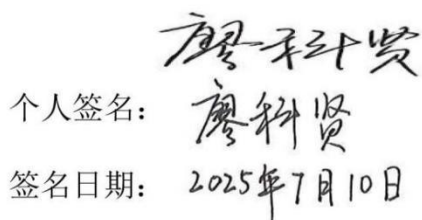 廖科贤
个人签名： 廖科贤
签名日期： 2025年7月10日